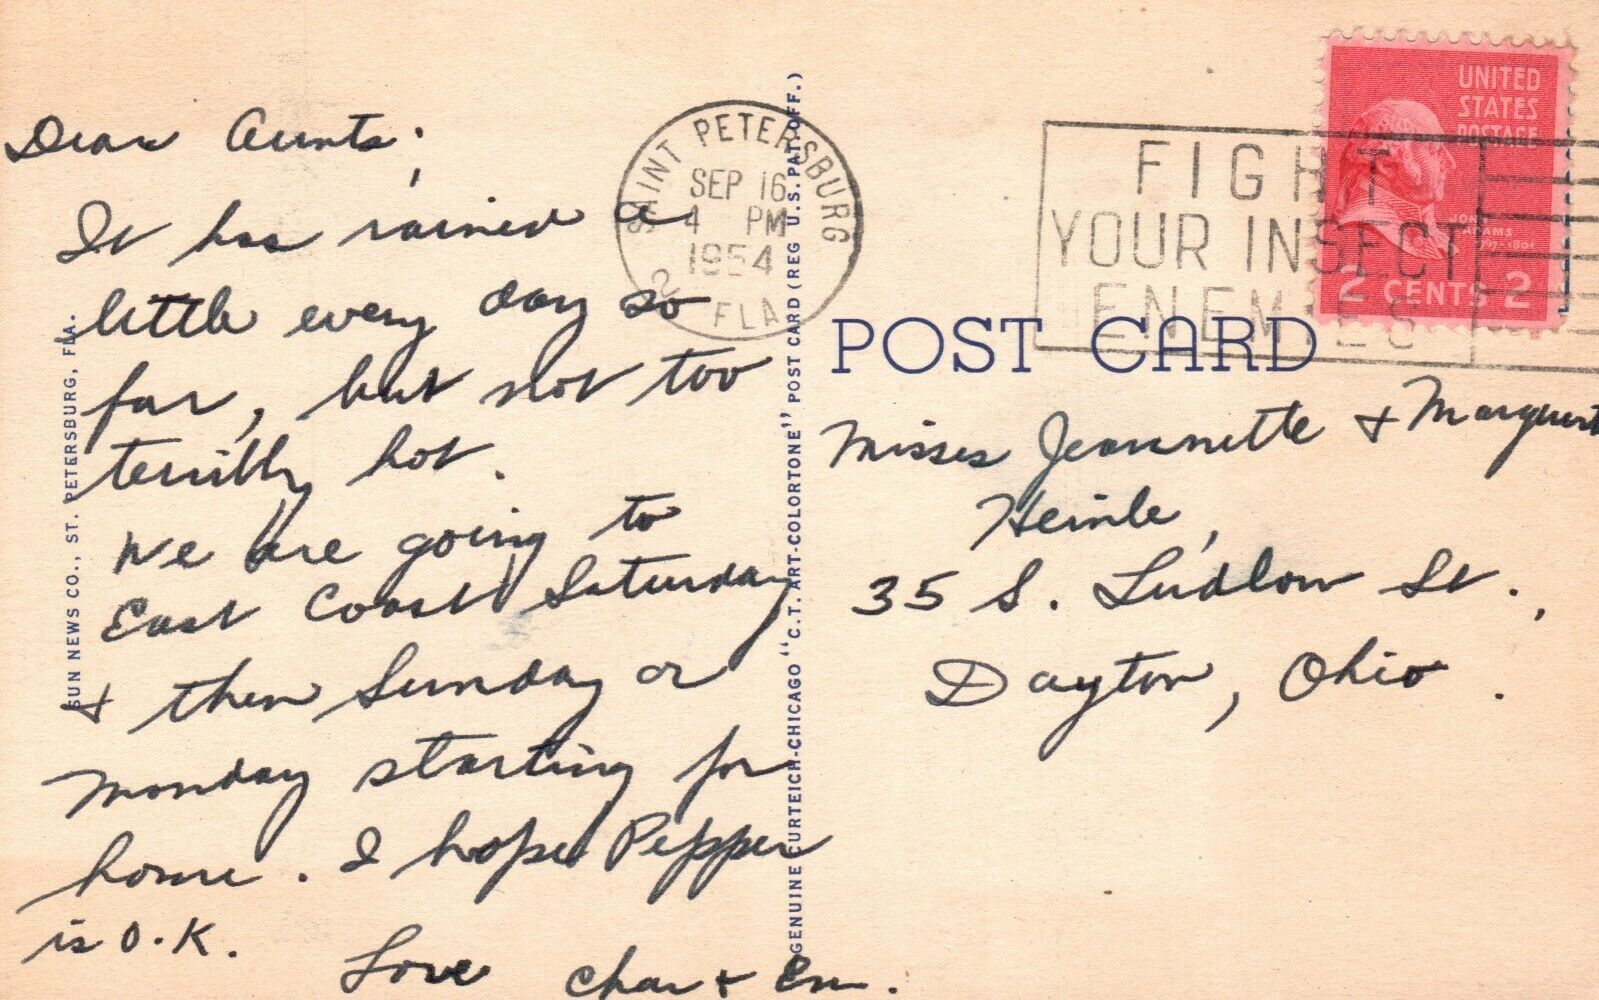 Dear Aunts;
It has rained a
little every day so
far, but not too
terribly hot.
We are going to
East Coast Saturday
+ then Sunday or
Monday starting for
home. I hope Pepper
is O.K.
Love Char + Em.
SUN NEWS CO., ST. PETERSBURG, FLA.
GENUINE CURTEICH-CHICAGO "C.T. ART-COLORTONE" POST CARD (REG U.S. PAT. OFF.)
SAINT PETERSBURG
SEP 16
4 PM
1954
2 FLA
FIGHT
YOUR INSECT
ENEMIES
UNITED
STATES
POSTAGE
JOHN
ADAMS
1797-1801
2 CENTS 2
POST CARD
Misses Jeannette + Marguerit
Heinle,
35 S. Ludlow St.,
Dayton, Ohio.